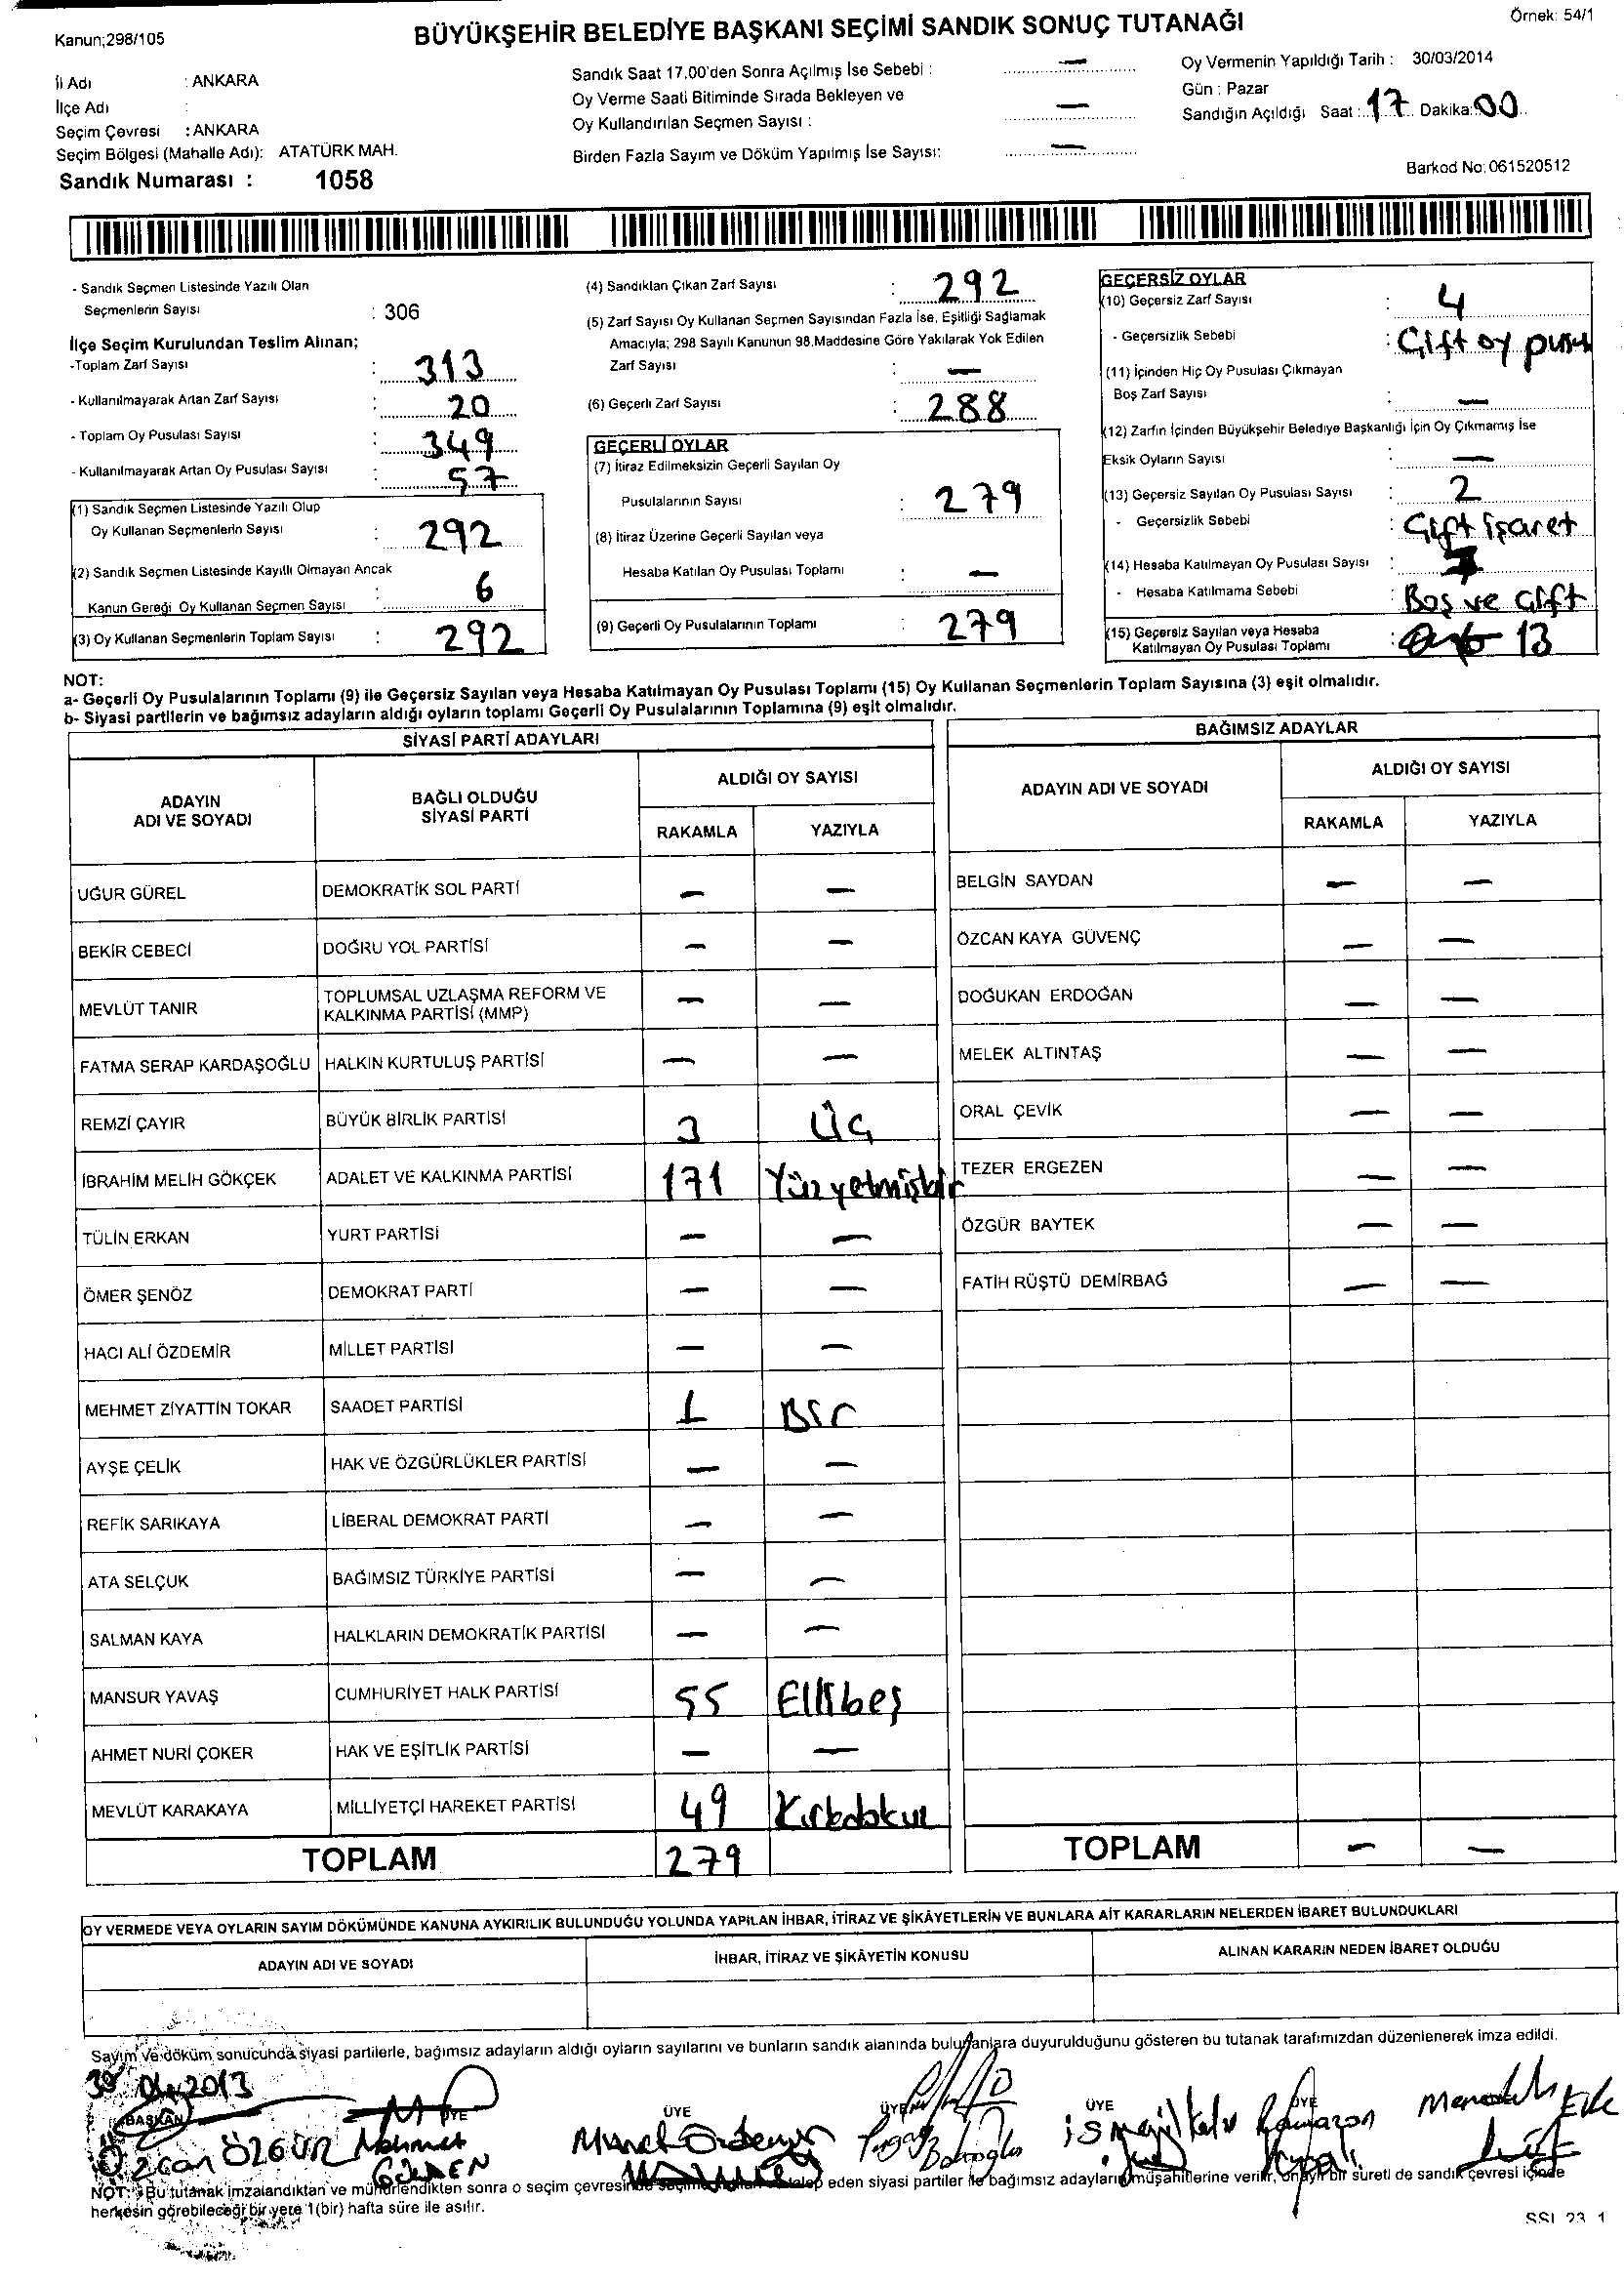 Kanun;298/105
BÜYÜKŞEHİR BELEDİYE BAŞKANI SEÇİMİ SANDIK SONUÇ TUTANAĞI
Örnek: 54/1
İl Adı : ANKARA
İlçe Adı :
Seçim Çevresi : ANKARA
Seçim Bölgesi (Mahalle Adı): ATATÜRK MAH.
Sandık Numarası : 1058
Sandık Saat 17.00'den Sonra Açılmış İse Sebebi : —
Oy Verme Saati Bitiminde Sırada Bekleyen ve
Oy Kullandırılan Seçmen Sayısı : —
Birden Fazla Sayım ve Döküm Yapılmış İse Sayısı: —
Oy Vermenin Yapıldığı Tarih : 30/03/2014
Gün : Pazar
Sandığın Açıldığı Saat : 17 Dakika: 00
Barkod No: 061520512
- Sandık Seçmen Listesinde Yazılı Olan
Seçmenlerin Sayısı : 306
İlçe Seçim Kurulundan Teslim Alınan;
-Toplam Zarf Sayısı : 313
- Kullanılmayarak Artan Zarf Sayısı : 20
- Toplam Oy Pusulası Sayısı : 349
- Kullanılmayarak Artan Oy Pusulası Sayısı : 57
(1) Sandık Seçmen Listesinde Yazılı Olup
Oy Kullanan Seçmenlerin Sayısı : 292
(2) Sandık Seçmen Listesinde Kayıtlı Olmayan Ancak
Kanun Gereği Oy Kullanan Seçmen Sayısı : 6
(3) Oy Kullanan Seçmenlerin Toplam Sayısı : 292
(4) Sandıktan Çıkan Zarf Sayısı : 292
(5) Zarf Sayısı Oy Kullanan Seçmen Sayısından Fazla İse, Eşitliği Sağlamak
Amacıyla; 298 Sayılı Kanunun 98.Maddesine Göre Yakılarak Yok Edilen
Zarf Sayısı : —
(6) Geçerli Zarf Sayısı : 288
GEÇERLİ OYLAR
(7) İtiraz Edilmeksizin Geçerli Sayılan Oy
Pusulalarının Sayısı : 279
(8) İtiraz Üzerine Geçerli Sayılan veya
Hesaba Katılan Oy Pusulası Toplamı : —
(9) Geçerli Oy Pusulalarının Toplamı : 279
GEÇERSİZ OYLAR
(10) Geçersiz Zarf Sayısı : 4
- Geçersizlik Sebebi : Çift oy pusu
(11) İçinden Hiç Oy Pusulası Çıkmayan
Boş Zarf Sayısı : —
(12) Zarfın İçinden Büyükşehir Belediye Başkanlığı İçin Oy Çıkmamış İse
Eksik Oyların Sayısı : —
(13) Geçersiz Sayılan Oy Pusulası Sayısı : 2
- Geçersizlik Sebebi : Çift işaret
(14) Hesaba Katılmayan Oy Pusulası Sayısı : 7
- Hesaba Katılmama Sebebi : Boş ve Çift
(15) Geçersiz Sayılan veya Hesaba
Katılmayan Oy Pusulası Toplamı : 13
NOT:
a- Geçerli Oy Pusulalarının Toplamı (9) ile Geçersiz Sayılan veya Hesaba Katılmayan Oy Pusulası Toplamı (15) Oy Kullanan Seçmenlerin Toplam Sayısına (3) eşit olmalıdır.
b- Siyasi partilerin ve bağımsız adayların aldığı oyların toplamı Geçerli Oy Pusulalarının Toplamına (9) eşit olmalıdır.
SİYASİ PARTİ ADAYLARI
ADAYIN ADI VE SOYADI BAĞLI OLDUĞU SİYASİ PARTİ ALDIĞI OY SAYISI
RAKAMLA YAZIYLA
UĞUR GÜREL DEMOKRATİK SOL PARTİ — —
BEKİR CEBECİ DOĞRU YOL PARTİSİ — —
MEVLÜT TANIR TOPLUMSAL UZLAŞMA REFORM VE KALKINMA PARTİSİ (MMP) — —
FATMA SERAP KARDAŞOĞLU HALKIN KURTULUŞ PARTİSİ — —
REMZİ ÇAYIR BÜYÜK BİRLİK PARTİSİ 3 Üç
İBRAHİM MELİH GÖKÇEK ADALET VE KALKINMA PARTİSİ 171 Yüzyetmişbir
TÜLİN ERKAN YURT PARTİSİ — —
ÖMER ŞENÖZ DEMOKRAT PARTİ — —
HACI ALİ ÖZDEMİR MİLLET PARTİSİ — —
MEHMET ZİYATTİN TOKAR SAADET PARTİSİ 1 Bir
AYŞE ÇELİK HAK VE ÖZGÜRLÜKLER PARTİSİ — —
REFİK SARIKAYA LİBERAL DEMOKRAT PARTİ — —
ATA SELÇUK BAĞIMSIZ TÜRKİYE PARTİSİ — —
SALMAN KAYA HALKLARIN DEMOKRATİK PARTİSİ — —
MANSUR YAVAŞ CUMHURİYET HALK PARTİSİ 55 Ellibeş
AHMET NURİ ÇOKER HAK VE EŞİTLİK PARTİSİ — —
MEVLÜT KARAKAYA MİLLİYETÇİ HAREKET PARTİSİ 49 Kırkdokuz
TOPLAM 279
BAĞIMSIZ ADAYLAR
ADAYIN ADI VE SOYADI ALDIĞI OY SAYISI
RAKAMLA YAZIYLA
BELGİN SAYDAN — —
ÖZCAN KAYA GÜVENÇ — —
DOĞUKAN ERDOĞAN — —
MELEK ALTINTAŞ — —
ORAL ÇEVİK — —
TEZER ERGEZEN — —
ÖZGÜR BAYTEK — —
FATİH RÜŞTÜ DEMİRBAĞ — —
TOPLAM — —
OY VERMEDE VEYA OYLARIN SAYIM DÖKÜMÜNDE KANUNA AYKIRILIK BULUNDUĞU YOLUNDA YAPILAN İHBAR, İTİRAZ VE ŞİKÂYETLERİN VE BUNLARA AİT KARARLARIN NELERDEN İBARET BULUNDUKLARI
ADAYIN ADI VE SOYADI İHBAR, İTİRAZ VE ŞİKÂYETİN KONUSU ALINAN KARARIN NEDEN İBARET OLDUĞU
Sayım ve döküm sonucunda siyasi partilerle, bağımsız adayların aldığı oyların sayılarını ve bunların sandık alanında bulunanlara duyurulduğunu gösteren bu tutanak tarafımızdan düzenlenerek imza edildi.
BAŞKAN ÜYE ÜYE ÜYE ÜYE ÜYE
Özcan ÖZGÜR Mehmet İsmail Ramazan
NOT: Bu tutanak imzalandıktan ve mühürlendikten sonra o seçim çevresinde talep eden siyasi partiler ile bağımsız adayların müşahitlerine verilir, onaylı bir sureti de sandık çevresi içinde
herkesin görebileceği bir yere 1(bir) hafta süre ile asılır.